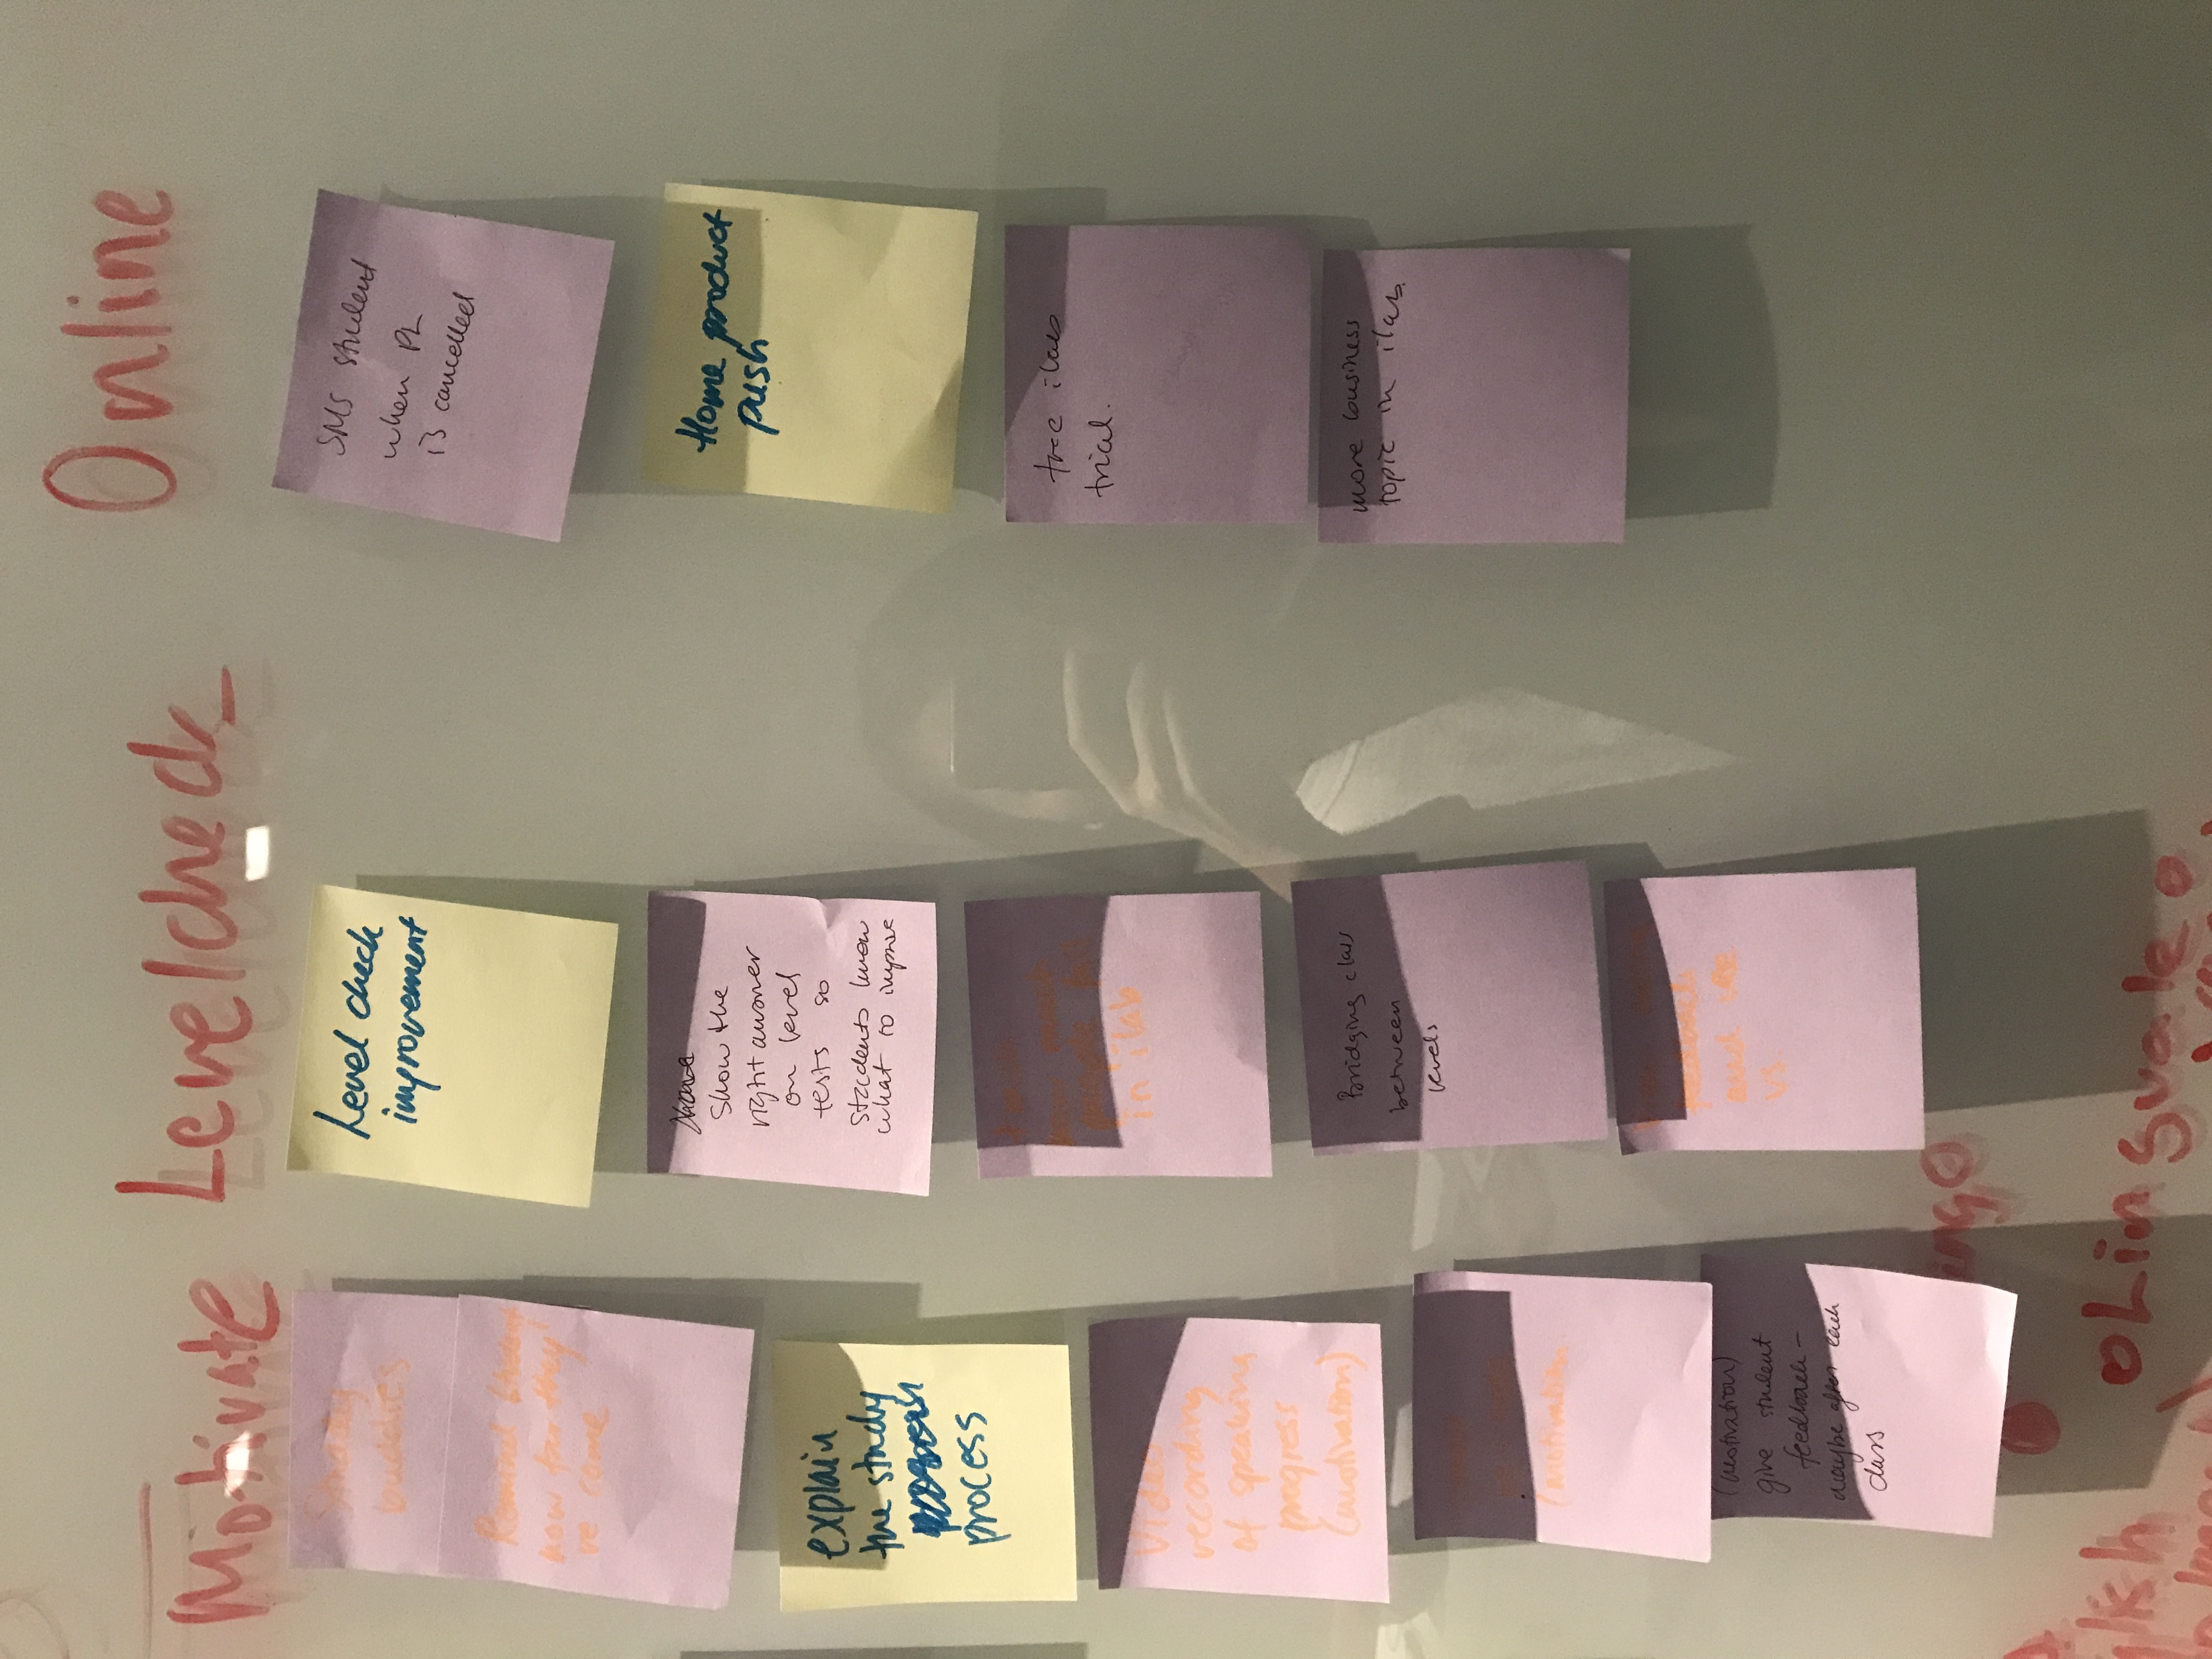 Motivate
Study
buddies
Remind student
how far they'
ve come
explain
the study
process
Video
recording
of speaking
progress
(motivation)
(motivation
(motivation)
give student
feedback -
maybe after each
class
Levelcheck
Level check
improvement
Show the
right answer
on level
tests so
students know
what to improve
how much
people
in ilab
Bridging class
between
levels
feedback
and
VS.
Online
SMS student
when PL
is cancelled
Home product
push
free ilab
trial.
more business
topic in ilab.
Linguale